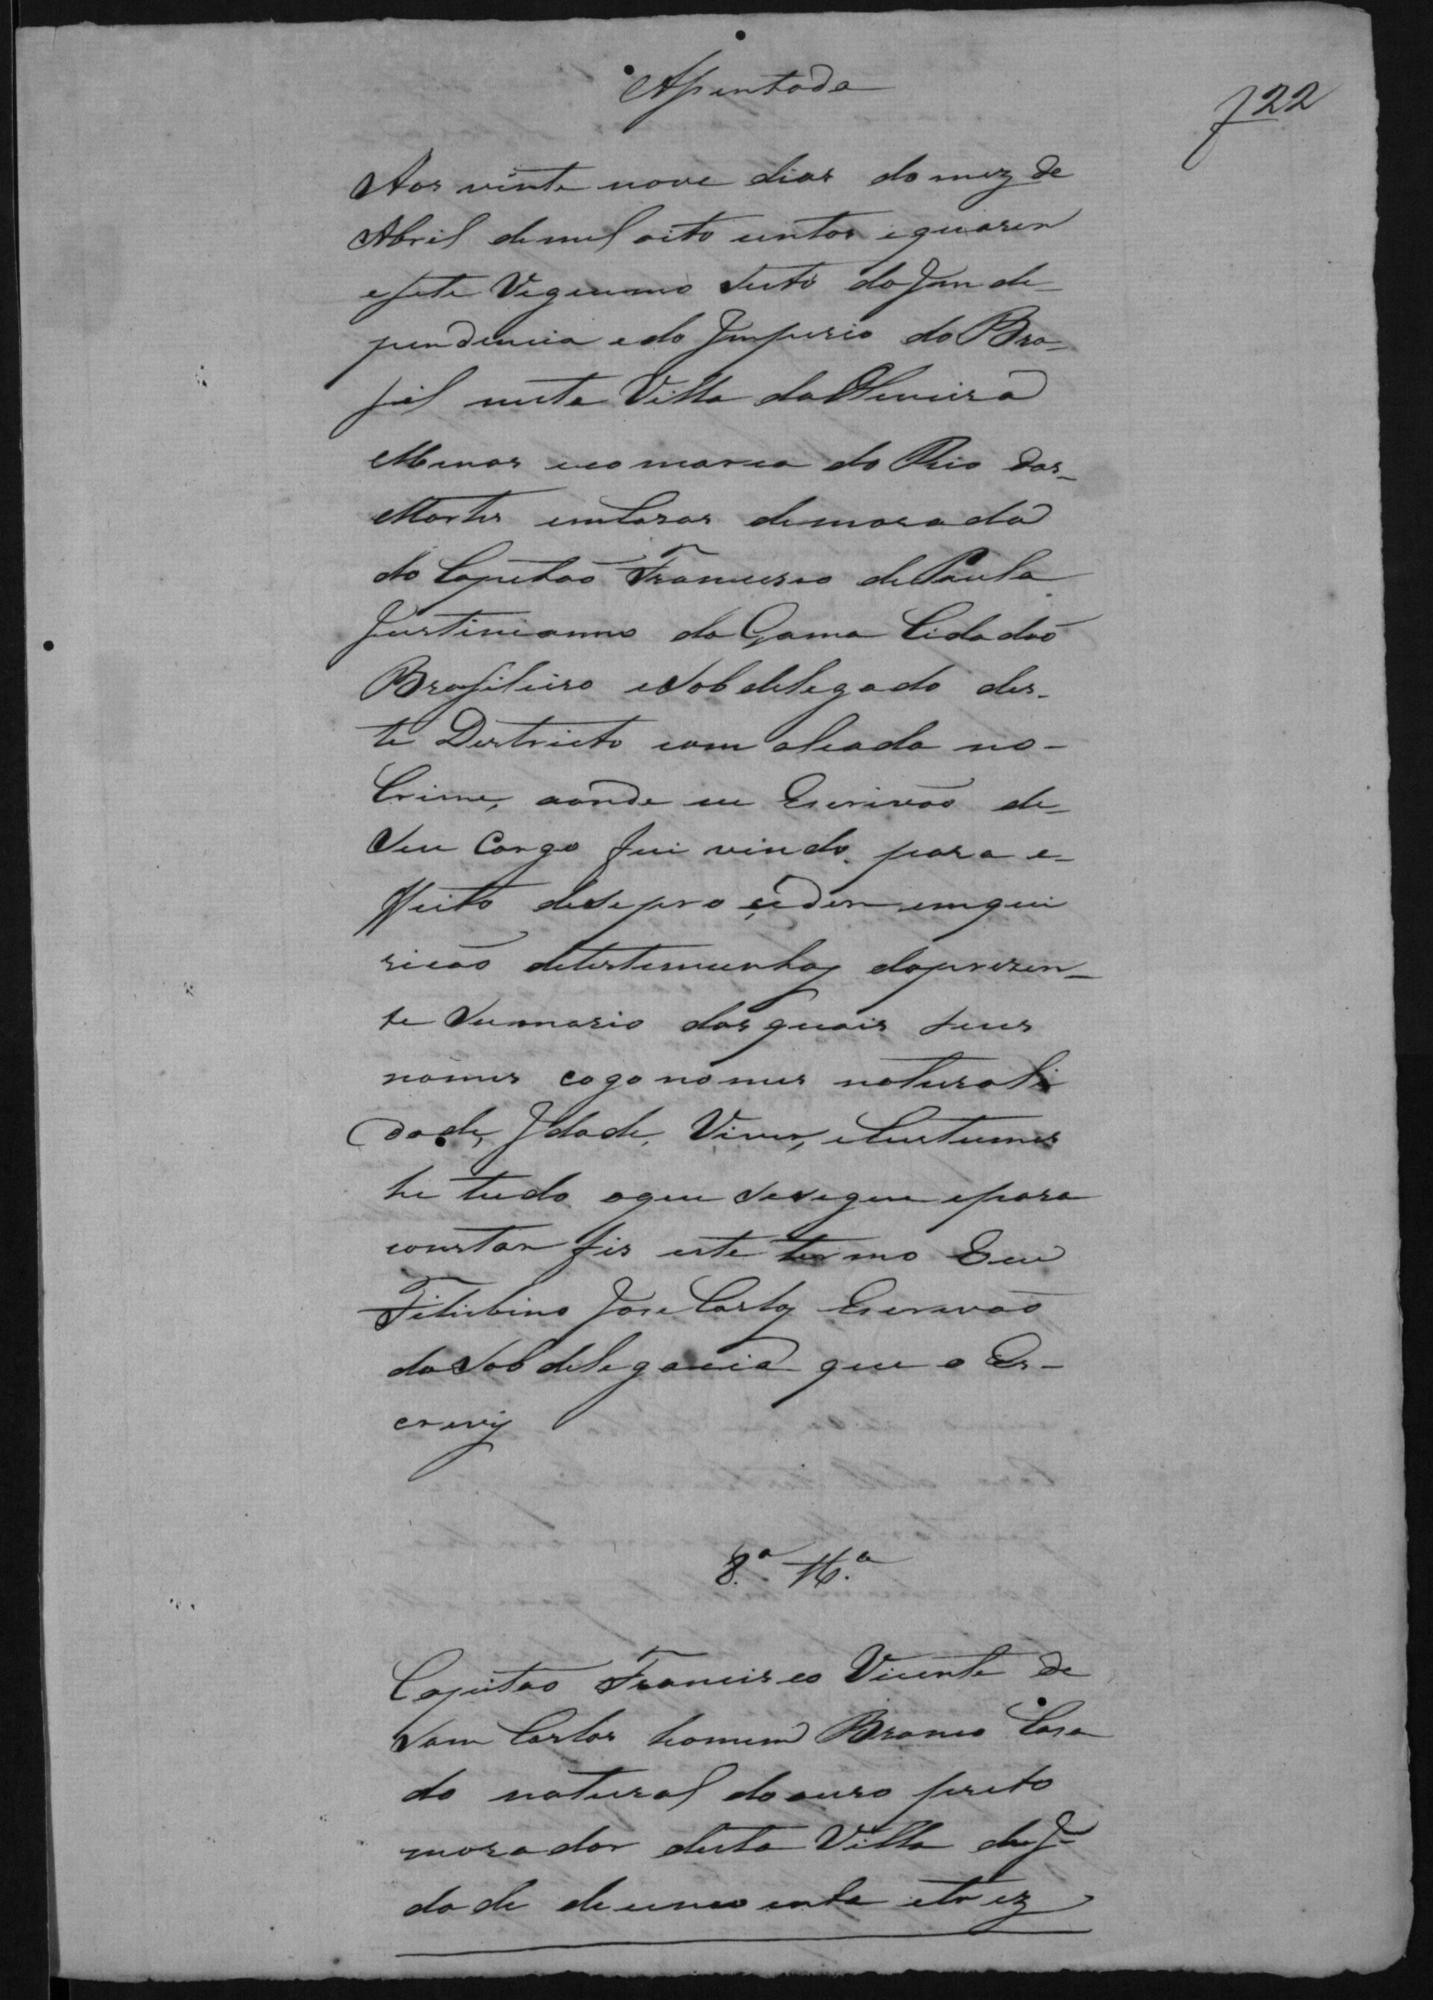 Apentada
f 22
Aos vinte nove dias do mez de
Abril de mil oito centos e quaren
e sete Vigecimo Sexto da Jnde-
pendencia e do Jmperio do Bra-
sil nesta Villa da Oliveira
Minas e comarca do Rio das-
Mortes em Casas de morada
do Capitão Francisco de Paula
Justinianno da Gama Cidadão
Brasileiro e Sobdelegado des-
te Destricto com alcada no-
Crime, aonde eu Escrivão de-
Seu Cargo fui vindo para e-
ffeito de se proçeder emqui
ricão de testemunhas do prezen-
te Summario das quais seus
nomes cogonomes naturali
dade, Jdade, Viver, e Custumes
he tudo o que Se segue e para
constar fis este termo Eu
Felisbino Jose Costa Escrivão
da Sobdelegacia que o Es-
crevy
8.ª Tt.ª
Capitão Francisco Vicente de
Sam Carlos homem Branco Casa
do natural do ouro preto
morador desta Villa de J-
dade de cincoenta e trez